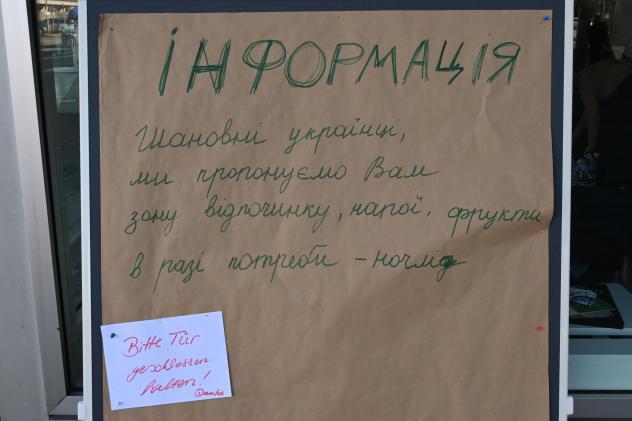 ІНФОРМАЦІЯ
Шановні українці,
ми пропонуємо Вам
зону відпочинку, напої, фрукти
в разі потреби – ночліг
Bitte Tür
geschlossen
halten!
Danke